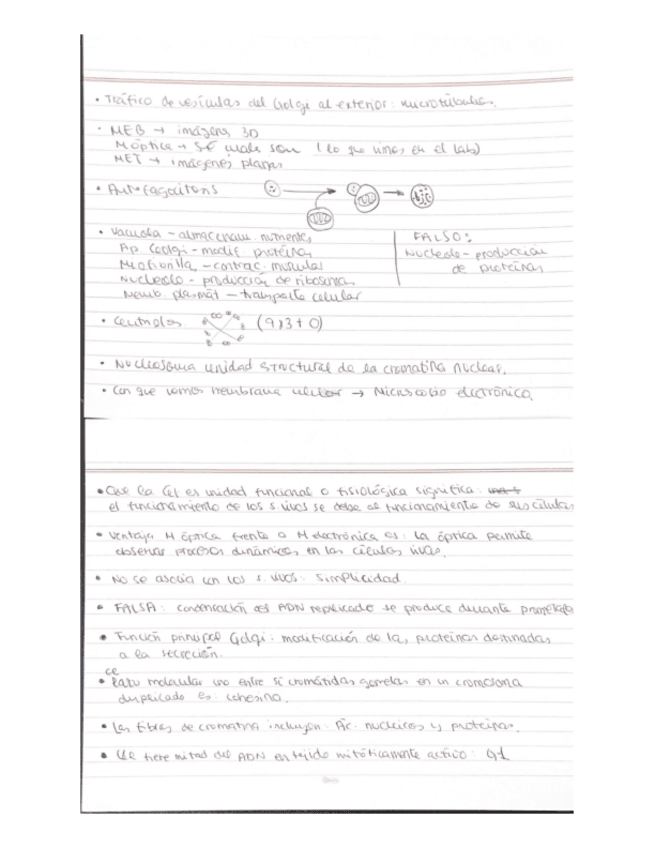 • Tráfico de vesículas del Golgi al exterior: microtúbulos.
• MEB → imágenes 3D
M óptica → SÉ cuales son (lo que vimos en el lab)
MET → imágenes planas
• Autofagocitosis
• Vacuola - almacenam. nutrientes
Ap. Golgi - modif. proteínas
Miofibrilla - contrac. muscular
Nucleolo - producción de ribosomas
Memb. plasmát - transporte celular
FALSO:
Nucleolo - producción
de proteínas
• Centriolos (9x3 + 0)
• Nucleosoma unidad structural de la cromatina nuclear.
• Con que vemos membrana celular → Microscopio electrónico.
• Que la Cel es unidad funcional o fisiológica significa:
el funcionamiento de los s. vivos se debe al funcionamiento de sus células
• Ventaja M óptica frente a M electrónica es: la óptica permite
observar procesos dinámicos en las células vivas.
• No se asocia con los s. vivos: simplicidad.
• FALSA: condensación del ADN replicado se produce durante prometafase
• Función principal Golgi: modificación de las proteínas destinadas
a la secreción.
• molecular une entre sí cromátidas gemelas en un cromosoma
duplicado es: cohesina.
• Las fibras de cromatina incluyen: Ác. nucleicos y proteínas.
• tiene mitad del ADN en tejido mitóticamente activo: G1